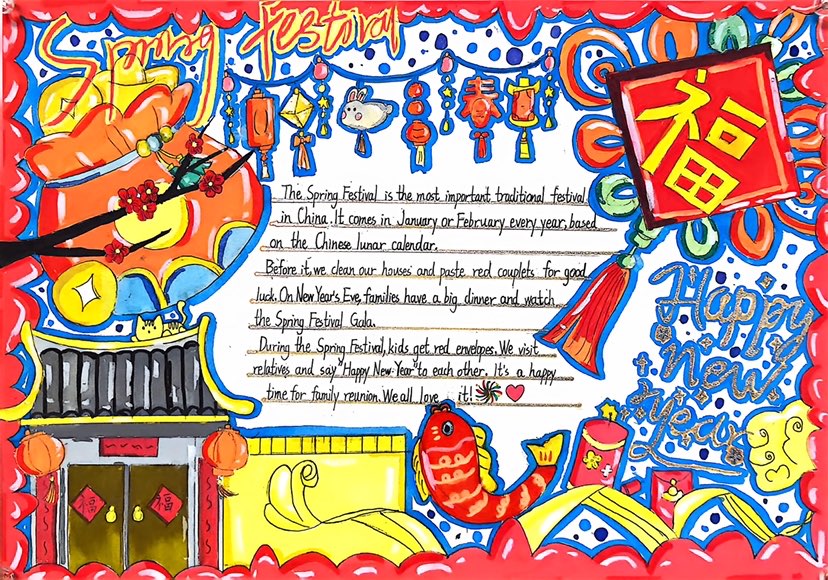 Spring Festival
春
福
The Spring Festival is the most important traditional festival
in China. It comes in January or February every year, based
on the Chinese lunar calendar.
Before it, we clean our houses and paste red couplets for good
luck. On New Year's Eve, families have a big dinner and watch
the Spring Festival Gala.
During the Spring Festival, kids get red envelopes. We visit
relatives and say "Happy New Year" to each other. It's a happy
time for family reunion. We all love it!
Happy
new
year
福 福